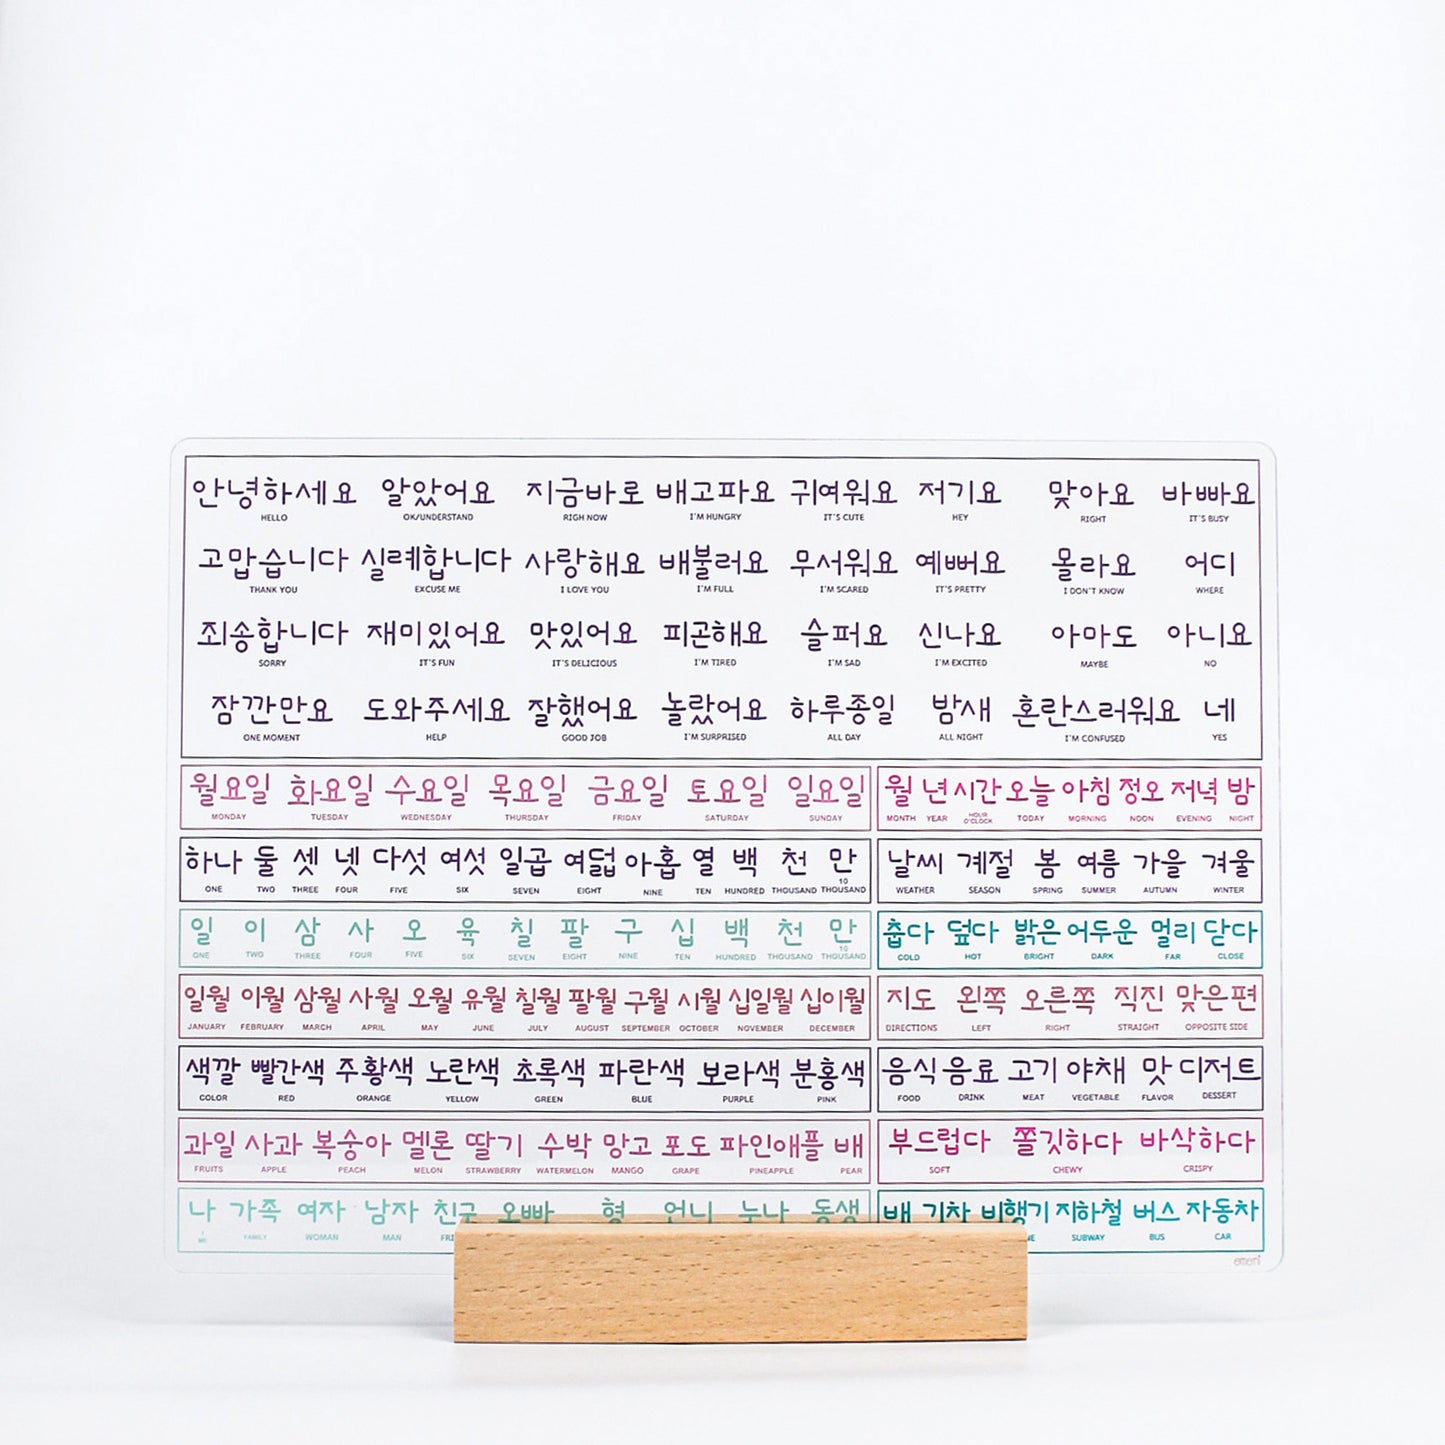 안녕하세요 알았어요 지금바로 배고파요 귀여워요 저기요 맞아요 바빠요
HELLO OK/UNDERSTAND RIGH NOW I'M HUNGRY IT'S CUTE HEY RIGHT IT'S BUSY
고맙습니다 실례합니다 사랑해요 배불러요 무서워요 예뻐요 몰라요 어디
THANK YOU EXCUSE ME I LOVE YOU I'M FULL I'M SCARED IT'S PRETTY I DON'T KNOW WHERE
죄송합니다 재미있어요 맛있어요 피곤해요 슬퍼요 신나요 아마도 아니요
SORRY IT'S FUN IT'S DELICIOUS I'M TIRED I'M SAD I'M EXCITED MAYBE NO
잠깐만요 도와주세요 잘했어요 놀랐어요 하루종일 밤새 혼란스러워요 네
ONE MOMENT HELP GOOD JOB I'M SURPRISED ALL DAY ALL NIGHT I'M CONFUSED YES
월요일 화요일 수요일 목요일 금요일 토요일 일요일
MONDAY TUESDAY WEDNESDAY THURSDAY FRIDAY SATURDAY SUNDAY
월 년 시간 오늘 아침 정오 저녁 밤
MONTH YEAR HOUR O'CLOCK TODAY MORNING NOON EVENING NIGHT
하나 둘 셋 넷 다섯 여섯 일곱 여덟 아홉 열 백 천 만
ONE TWO THREE FOUR FIVE SIX SEVEN EIGHT NINE TEN HUNDRED THOUSAND 10 THOUSAND
날씨 계절 봄 여름 가을 겨울
WEATHER SEASON SPRING SUMMER AUTUMN WINTER
일 이 삼 사 오 육 칠 팔 구 십 백 천 만
ONE TWO THREE FOUR FIVE SIX SEVEN EIGHT NINE TEN HUNDRED THOUSAND 10 THOUSAND
춥다 덮다 밝은 어두운 멀리 닫다
COLD HOT BRIGHT DARK FAR CLOSE
일월 이월 삼월 사월 오월 유월 칠월 팔월 구월 시월 십일월 십이월
JANUARY FEBRUARY MARCH APRIL MAY JUNE JULY AUGUST SEPTEMBER OCTOBER NOVEMBER DECEMBER
지도 왼쪽 오른쪽 직진 맞은편
DIRECTIONS LEFT RIGHT STRAIGHT OPPOSITE SIDE
색깔 빨간색 주황색 노란색 초록색 파란색 보라색 분홍색
COLOR RED ORANGE YELLOW GREEN BLUE PURPLE PINK
음식 음료 고기 야채 맛 디저트
FOOD DRINK MEAT VEGETABLE FLAVOR DESSERT
과일 사과 복숭아 멜론 딸기 수박 망고 포도 파인애플 배
FRUITS APPLE PEACH MELON STRAWBERRY WATERMELON MANGO GRAPE PINEAPPLE PEAR
부드럽다 쫄깃하다 바삭하다
SOFT CHEWY CRISPY
나 가족 여자 남자 친구 오빠 형 언니 누나 동생
I ME FAMILY WOMAN MAN
배 기차 비행기 지하철 버스 자동차
SUBWAY BUS CAR